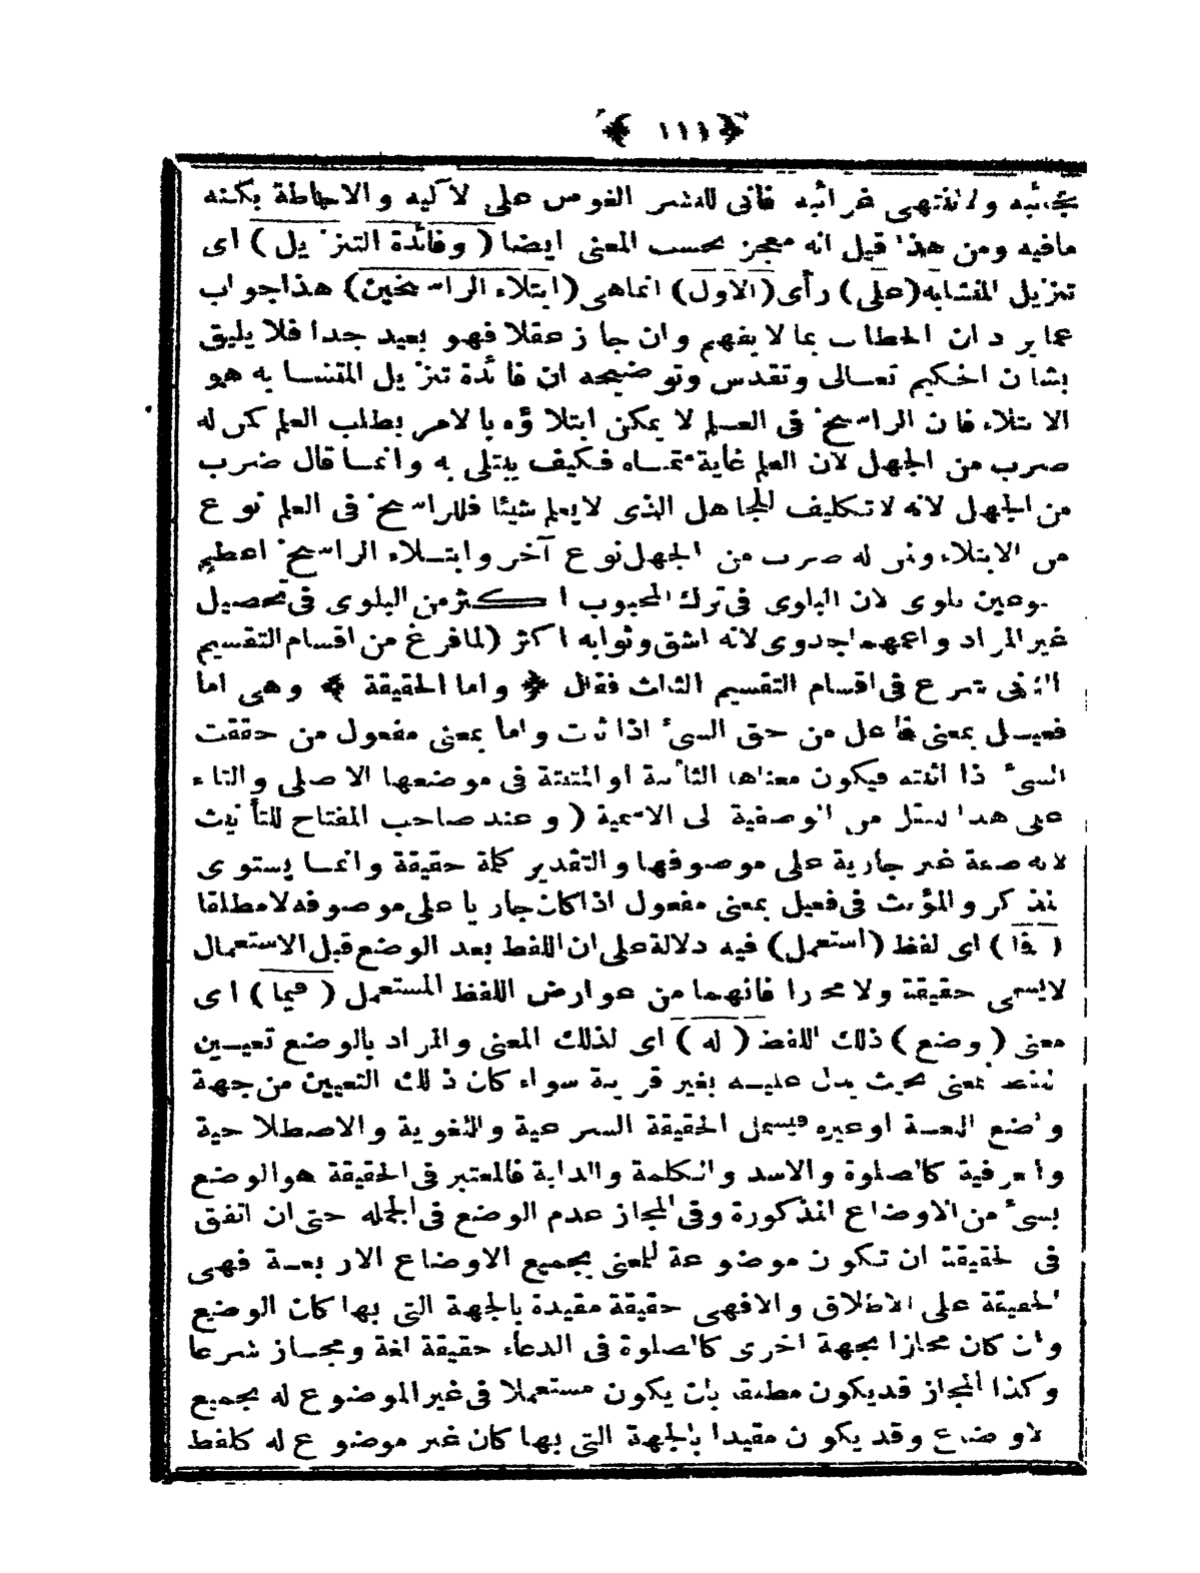 ﴿ ١١١ ﴾
عجائبه ولا تنتهى غرائبه فانى للبشر الغوص على لآليه والاحاطة بكنه
مافيه ومن هذا قيل انه معجز بحسب المعنى ايضا (وفائدة التنزيل) اى
تنزيل المتشابه (على) رأى (الاول) انماهى (ابتلاء الراسخين) هذاجواب
عما يرد ان الخطاب بما لا يفهم وان جاز عقلا فهو بعيد جدا فلا يليق
بشان الحكيم تعالى وتقدس وتوضيحه ان فائدة تنزيل المتشابه هو
الابتلاء فان الراسخ فى العلم لا يمكن ابتلاؤه بالامر بطلب العلم كمن له
ضرب من الجهل لان العلم غاية متمناه فكيف يبتلى به وانما قال ضرب
من الجهل لانه لا تكليف للجاهل الذى لايعلم شيئا فللراسخ فى العلم نوع
من الابتلاء ولمن له ضرب من الجهل نوع آخر وابتلاء الراسخ اعظم
نوعين بلوى لان البلوى فى ترك المحبوب اكثر من البلوى فى تحصيل
غير المراد واعمهما جدوى لانه اشق وثوابه اكثر (لمافرغ من اقسام التقسيم
الثانى شرع فى اقسام التقسيم الثالث فقال ﴿ واما الحقيقة ﴾ وهى اما
فعيل بمعنى فاعل من حق الشئ اذا ثبت واما بمعنى مفعول من حققت
الشئ اذا اثبته فيكون معناها الثابتة او المثبتة فى موضعها الاصلى والتاء
على هذا للنقل من الوصفية الى الاسمية (وعند صاحب المفتاح للتأنيث
لانه صفة غير جارية على موصوفها والتقدير كلمة حقيقة وانما يستوى
المذكر والمؤنث فى فعيل بمعنى مفعول اذا كان جاريا على موصوفه لا مطلقا
(فا) اى لفظ (استعمل) فيه دلالة على ان اللفظ بعد الوضع قبل الاستعمال
لايسمى حقيقة ولا مجازا فانهما من عوارض اللفظ المستعمل (فيما) اى
معنى (وضع) ذلك اللفظ (له) اى لذلك المعنى والمراد بالوضع تعيين
اللفظ لمعنى بحيث يدل عليه بغير قرينة سواء كان ذلك التعيين من جهة
واضع اللغة او غيره فيشمل الحقيقة الشرعية واللغوية والاصطلاحية
والعرفية كالصلوة والاسد والكلمة والدابة فالمعتبر فى الحقيقة هو الوضع
بشئ من الاوضاع المذكورة وفى المجاز عدم الوضع فى الجمله حتى ان اتفق
فى الحقيقة ان تكون موضوعة للمعنى بجميع الاوضاع الاربعة فهى
الحقيقة على الاطلاق والا فهى حقيقة مقيدة بالجهة التى بها كان الوضع
وان كان مجازا بجهة اخرى كالصلوة فى الدعاء حقيقة لغة ومجاز شرعا
وكذا المجاز قد يكون مطلقا بان يكون مستعملا فى غير الموضوع له بجميع
الاوضاع وقد يكون مقيدا بالجهة التى بها كان غير موضوع له كلفظ